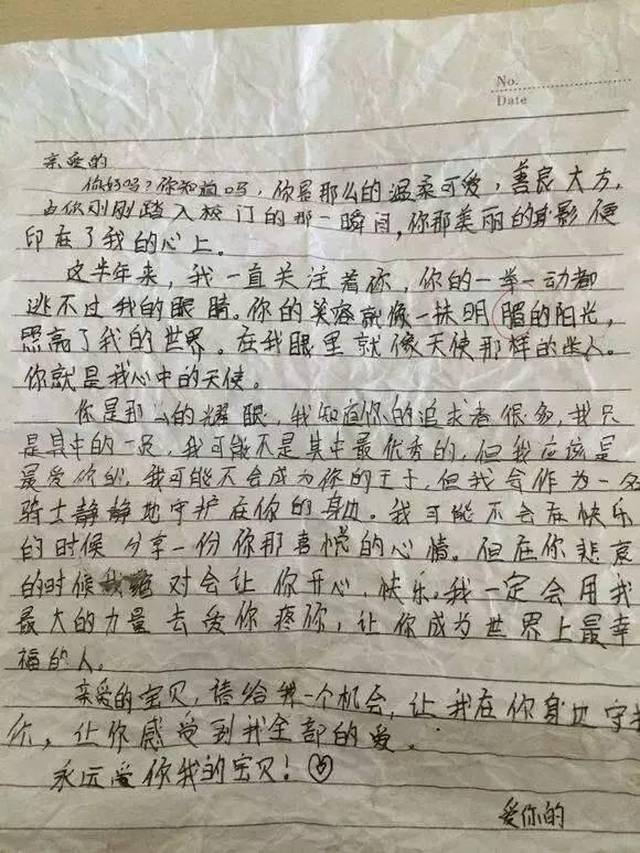 No.
Date
亲爱的
你好吗?你知道吗,你是那么的温柔可爱,善良大方,
由你刚刚踏入校门的那一瞬间,你那美丽的身影便
印在了我的心上。
这半年来,我一直关注着你,你的一举一动都
逃不过我的眼睛。你的笑容就像一抹明眉的阳光,
照亮了我的世界。在我眼里就像天使那样的坐人。
你就是我心中的天使。
你是那么的耀眼,我知道你的追求者很多,我只
是其中的一员,我可能不是其中最优秀的,但我应该是
最爱你的,我可能不会成为你的王子,但我会作为一名
骑士静静地守护在你的身边。我可能不会在快乐
的时候分享一份你那喜悦的心情。但在你悲哀
的时候我绝对会让你开心、快乐。我一定会用我
最大的力量去爱你疼你,让你成为世界上最幸
福的人。
亲爱的宝贝,请给我一个机会,让我在你身边守护
你,让你感受到我全部的爱。
永远爱你我的宝贝!
爱你的